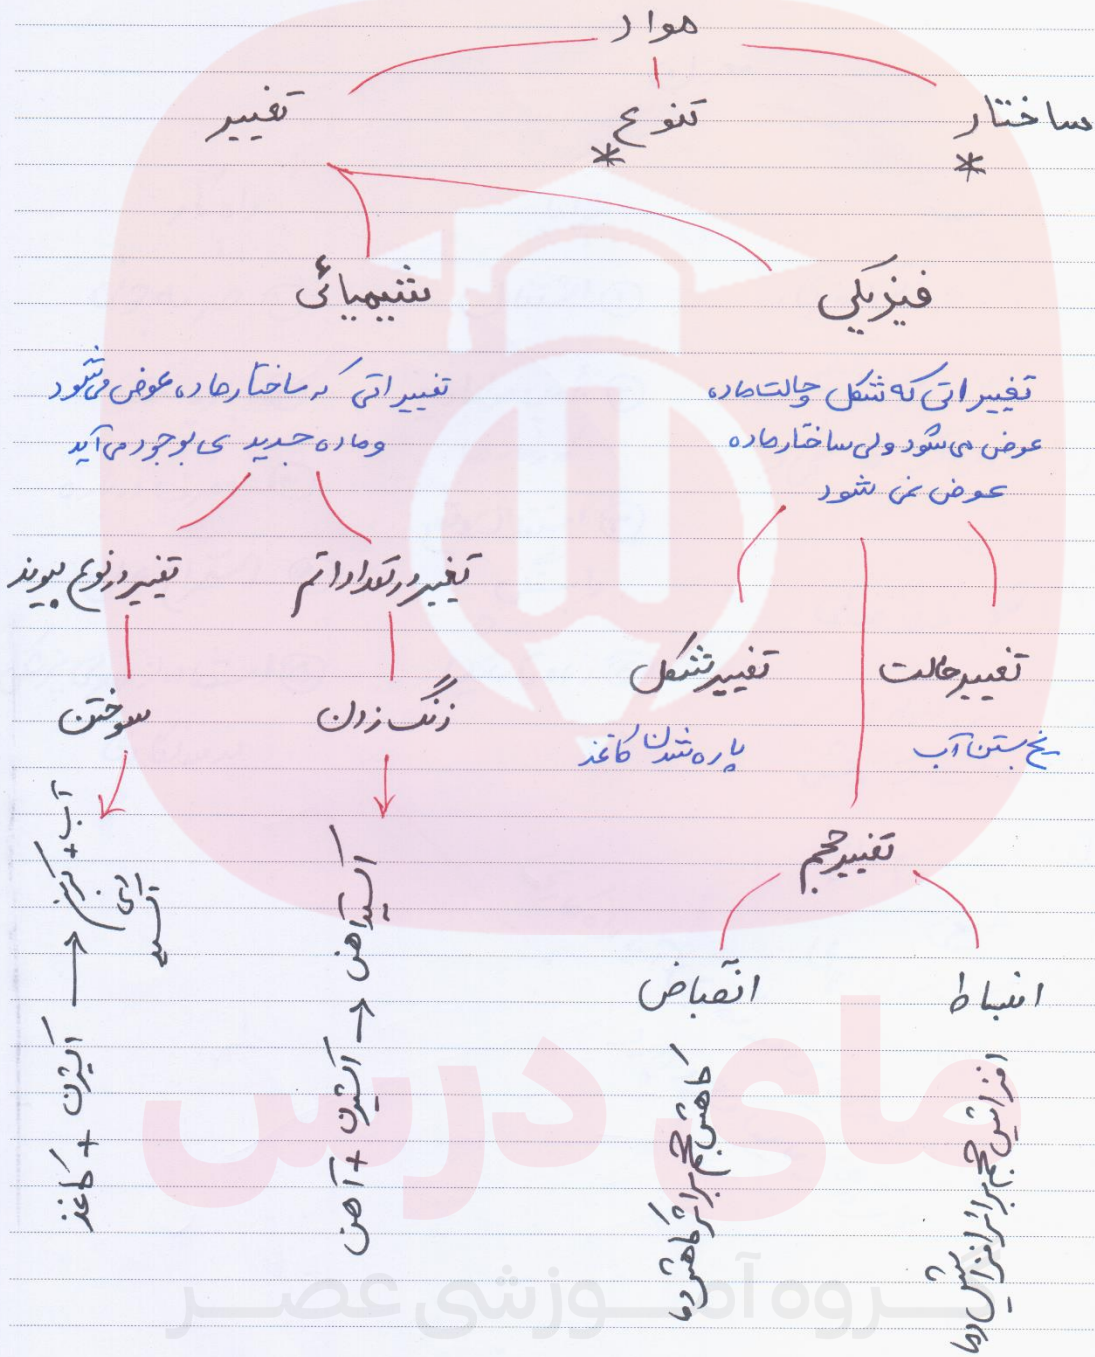 مواد
ساختار
*
تنوع
*
تغییر
فیزیکی
شیمیائی
تغییراتی که شکل و حالت ماده
عوض می شود ولی ساختار ماده
عوض نمی شود
تغییراتی که ساختار ماده عوض می شود
و ماده جدید ی بوجود می آید
تغییر حالت
یخ بستن آب
تغییر شکل
پاره شدن کاغذ
تغییر حجم
انبساط
افزایش حجم بر اثر افزایش دما
انقباض
کاهش حجم بر اثر کاهش دما
تغییر در تعداد اتم
زنگ زدن
آهن + اکسیژن → اکسید آهن
تغییر در نوع پیوند
سوختن
کاغذ + اکسیژن → آب +
مای درس
گروه آموزشی عصر